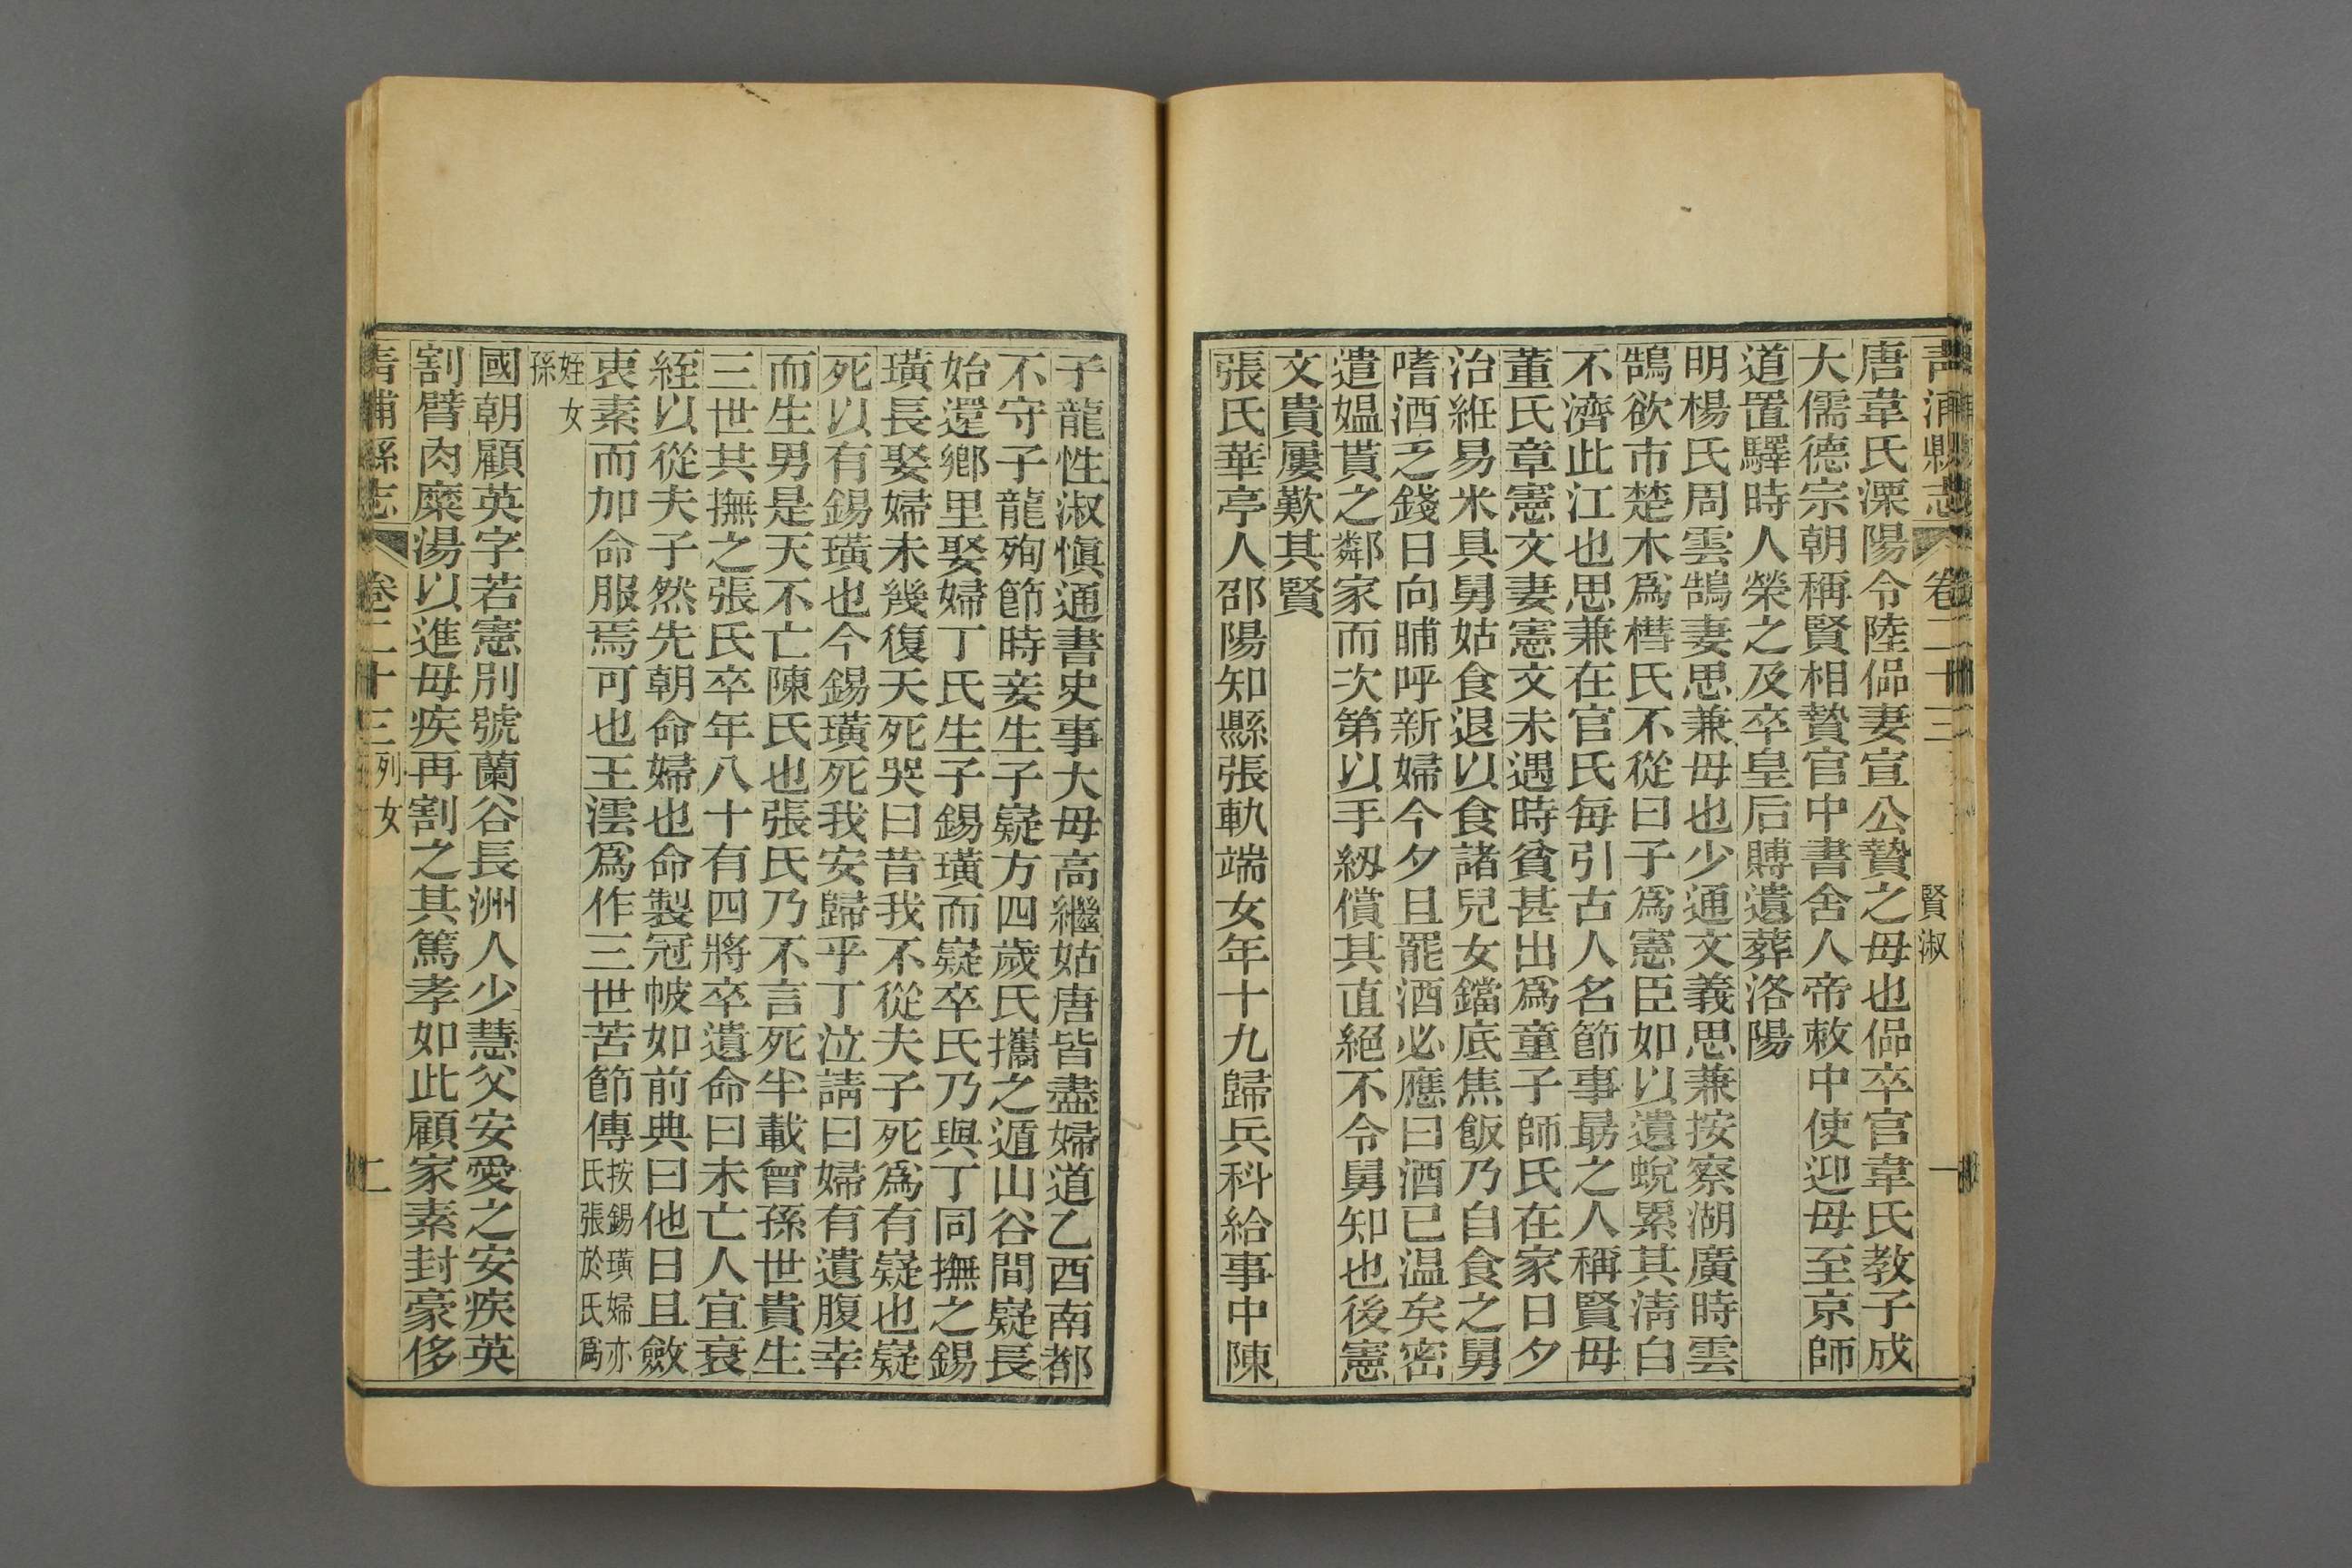 青浦縣志 卷二十三 賢淑 一
唐韋氏溧陽令陸偘妻宣公贄之母也偘卒官韋氏教子成
大儒德宗朝稱賢相贄官中書舍人帝敕中使迎母至京師
道置驛時人榮之及卒皇后賻遺葬洛陽
明楊氏周雲鵠妻思兼母也少通文義思兼按察湖廣時雲
鵠欲市楚木爲槥氏不從曰子爲憲臣如以遺蛻累其淸白
不濟此江也思兼在官氏每引古人名節事最之人稱賢母
董氏章憲文妻憲文未遇時貧甚出爲童子師氏在家日夕
治絍易米具舅姑食退以食諸兒女鐺底焦飯乃自食之舅
嗜酒乏錢日向晡呼新婦今夕且罷酒必應曰酒已温矣密
遣媪貰之鄰家而次第以手紉償其直絕不令舅知也後憲
文貴屢歎其賢
張氏華亭人邵陽知縣張軌端女年十九歸兵科給事中陳
子龍性淑愼通書史事大母高繼姑唐皆盡婦道乙酉南都
不守子龍殉節時妾生子嶷方四歲氏攜之遁山谷間嶷長
始還鄉里娶婦丁氏生子錫璜而嶷卒氏乃與丁同撫之錫
璜長娶婦未幾復夭死哭曰昔我不從夫子死爲有嶷也嶷
死以有錫璜也今錫璜死我安歸乎丁泣請曰婦有遺腹幸
而生男是天不亡陳氏也張氏乃不言死半載曾孫世貴生
三世共撫之張氏卒年八十有四將卒遺命曰未亡人宜衰
絰以從夫子然先朝命婦也命製冠帔如前典曰他日且斂
衷素而加命服焉可也王澐爲作三世苦節傳按錫璜婦亦氏張於氏爲
姪女孫
國朝顧英字若憲別號蘭谷長洲人少慧父安愛之安疾英
割臂肉糜湯以進母疾再割之其篤孝如此顧家素封豪侈
青浦縣志 卷二十三 列女 二